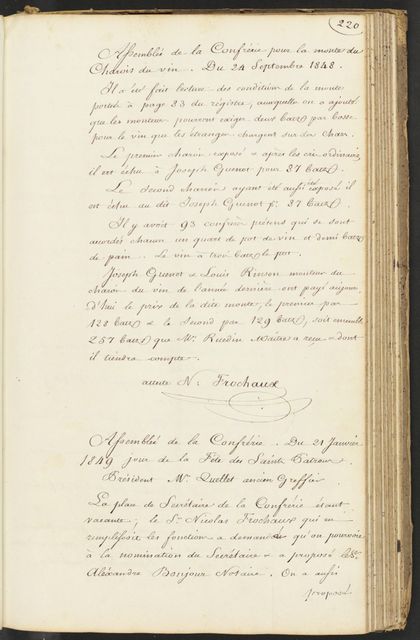 220
Assemblée de la Confrérie pour la monte du
Charois du vin. Du 24 Septembre 1848.
Il a été fait lecture des condition de la monte
portée à page 23 du régistre, auxquelle on a ajouté
que les monteur pourront exiger deux batz par bosse
pour le vin que les étranger chargent sur les Char.
Le premier charoi exposé & après les crie ordinaire,
il est échu à Joseph Guenot pour 27 batz.
Le second charroi ayant été aussi exposé il
est échu au dit Joseph Guenot pr. 27 Batz.
Il y avoit 93 confrère présens qui se sont
acordés chacun un quart de pot de vin et demi batz
de pain. Le vin à trois batz le pot.
Joseph Guenot & Louis Rinson monteur du
charoi du vin de l'année dernière ont payé aujour
d'hui le prix de la dite monte, le premier par
128 batz & le second par 129 batz, soit ensemble
257 batz que Mr. Ruedin Maître a reçu & dont
il tiendra compte.
atteste N: Frochaux
Assemblée de la Confrérie. Du 21 Janvier
1849 jour de la Fête des Saints Patrons.
Président Mr. Quellet ancien Greffier
La place de Secrétaire de la Confrérie étant
vacante, le Sr. Nicolas Frochaux qui en
remplissoit les fonction a demandé qu'on pourvoie
à la nomination du Secrétaire & a proposé le Sr.
Aléxandre Bonjour Notaire. On a aussi
proposé